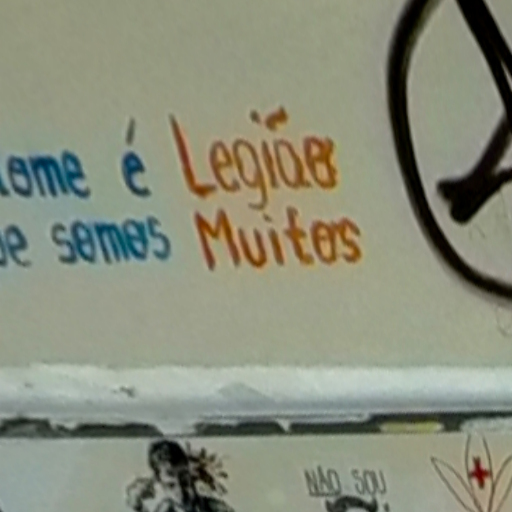 ome é Legião
e somos Muitos
NÃO SOU